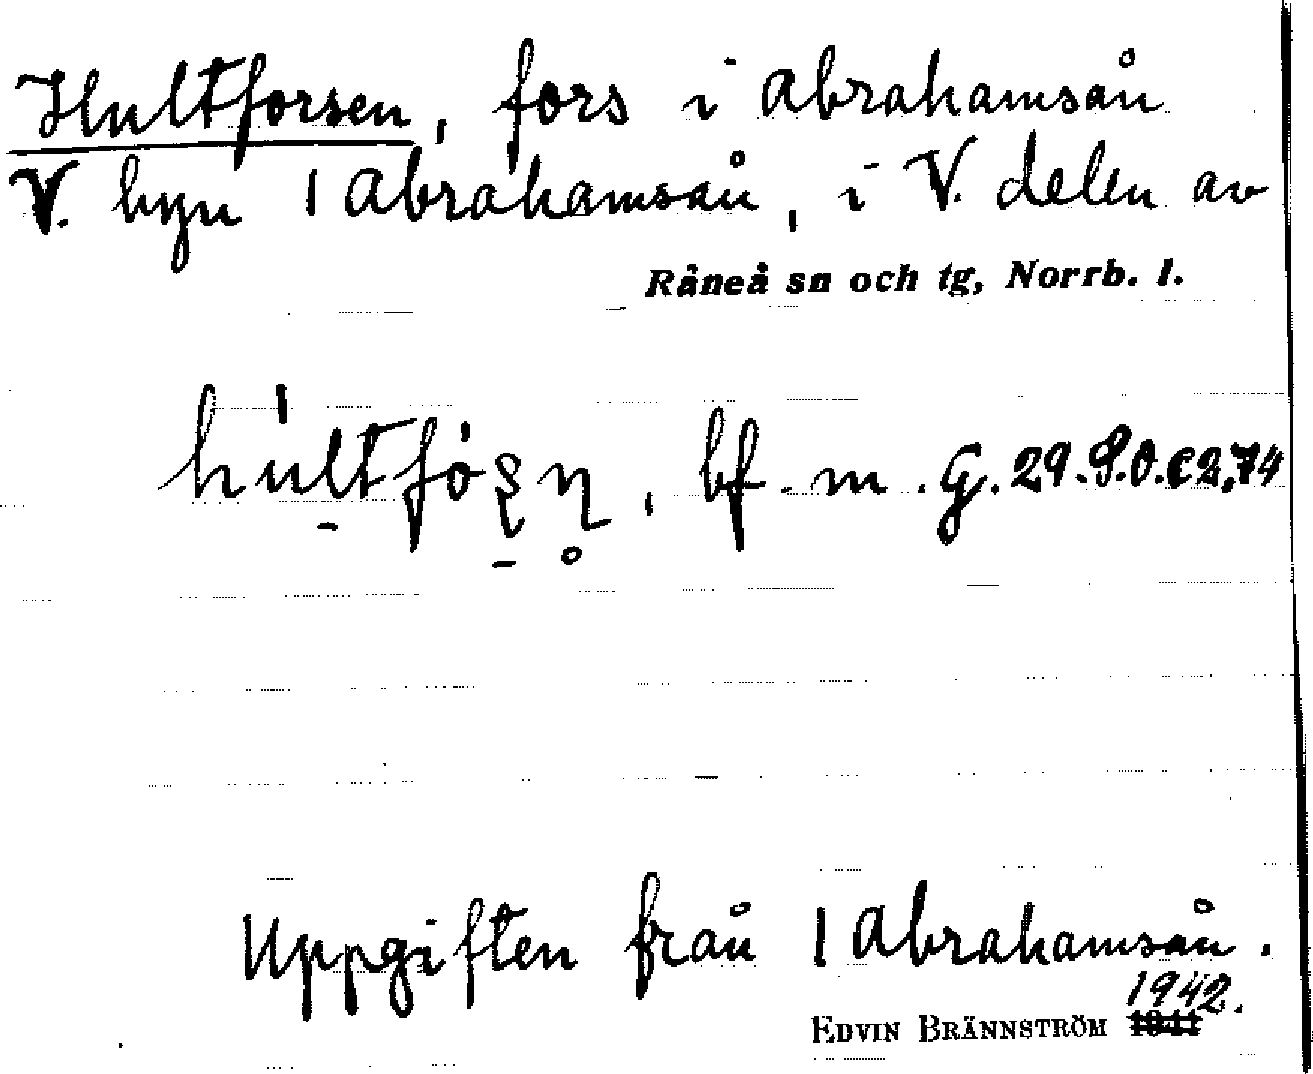 Hultforsen, fors i Abrahamsån
V. byn 1 Abrahamsån, i V. delen av
Råneå sn och tg, Norrb. l.
bf. m. G. 29.
Uppgiften från 1 Abrahamsån.
1942.
EDVIN BRÄNNSTRÖM 1941